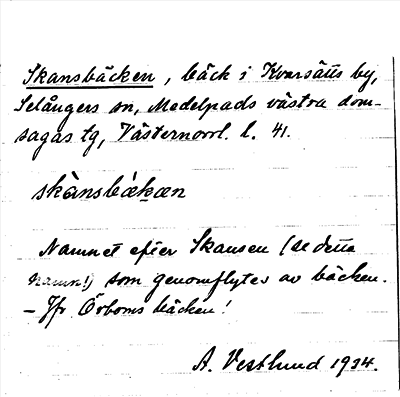 Skansbäcken, bäck i Kvarsätts by,
Selångers sn, Medelpads västra dom-
sagas tg, Västernorrl. l. 41.
skànsbàkæn
Namnet efter Skansen (se detta
namn!) som genomflytes av bäcken.
– Jfr Örboms bäcken!
A. Vestlund 1934.